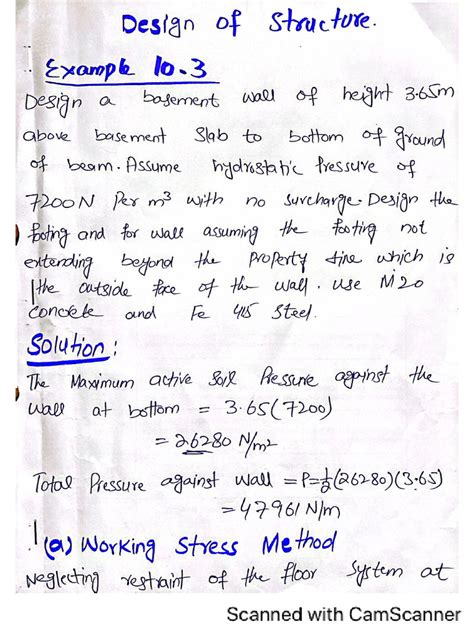 Design of Structure.
Example 10.3
Design a basement wall of height 3.65m
above basement Slab to bottom of ground
of beam. Assume hydrostatic Pressure of
7200N Per m³ with no surcharge. Design the
footing and for wall assuming the footing not
extending beyond the Property line which is
the outside face of the wall. use M20
concrete and Fe 415 Steel.
Solution:
The Maximum active Soil Pressure against the
wall at bottom = 3.65(7200)
= 26280 N/m²
Total Pressure against wall = P=½(26280)(3.65)
= 47961 N/m
(a) Working Stress Method
Neglecting restraint of the floor System at
Scanned with CamScanner